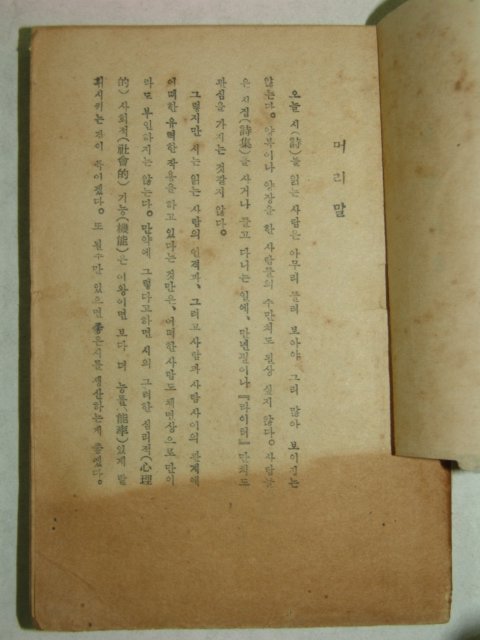 머리말
오늘 시(詩)를 읽는 사람은 아무리 둘러 보아야 그리 많아 보이지는
않는다. 양복이나 양장을 한 사람들의 수만치도 필상 싶지 않다. 사람들
은 시집(詩集)을 사거나 들고 다니는 일에, 만년필이나 『라이터』만치도
관심을 가지는 것같지 않다.
그렇지만 시는 읽는 사람의 인격과, 그리고 사람과 사람 사이의 관계에
어떠한 유력한 작용을 하고 있다는 것만은, 어떠한 사람도 체면상으로만이
라도 부인하지는 않는다. 만약에 그렇다고하면 시의 그러한 심리적(心理
的) 사회적(社會的) 기능(機能)은 이왕이면 보다 더 능률(能率)있게 발
휘시키는 것이 좋겠다. 또 될수만 있으면 좋은시를 생산하는게 좋겠다.